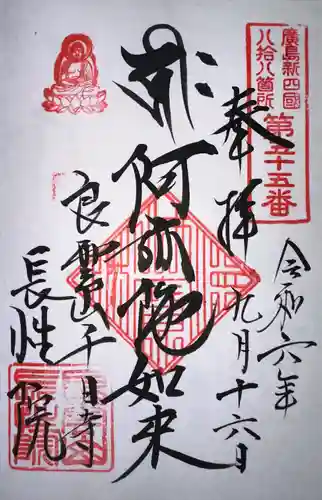 廣島新四國
八拾八箇所
第五十五番
奉拝
令和六年
九月十六日
阿弥陀如来
千日寺
長性院